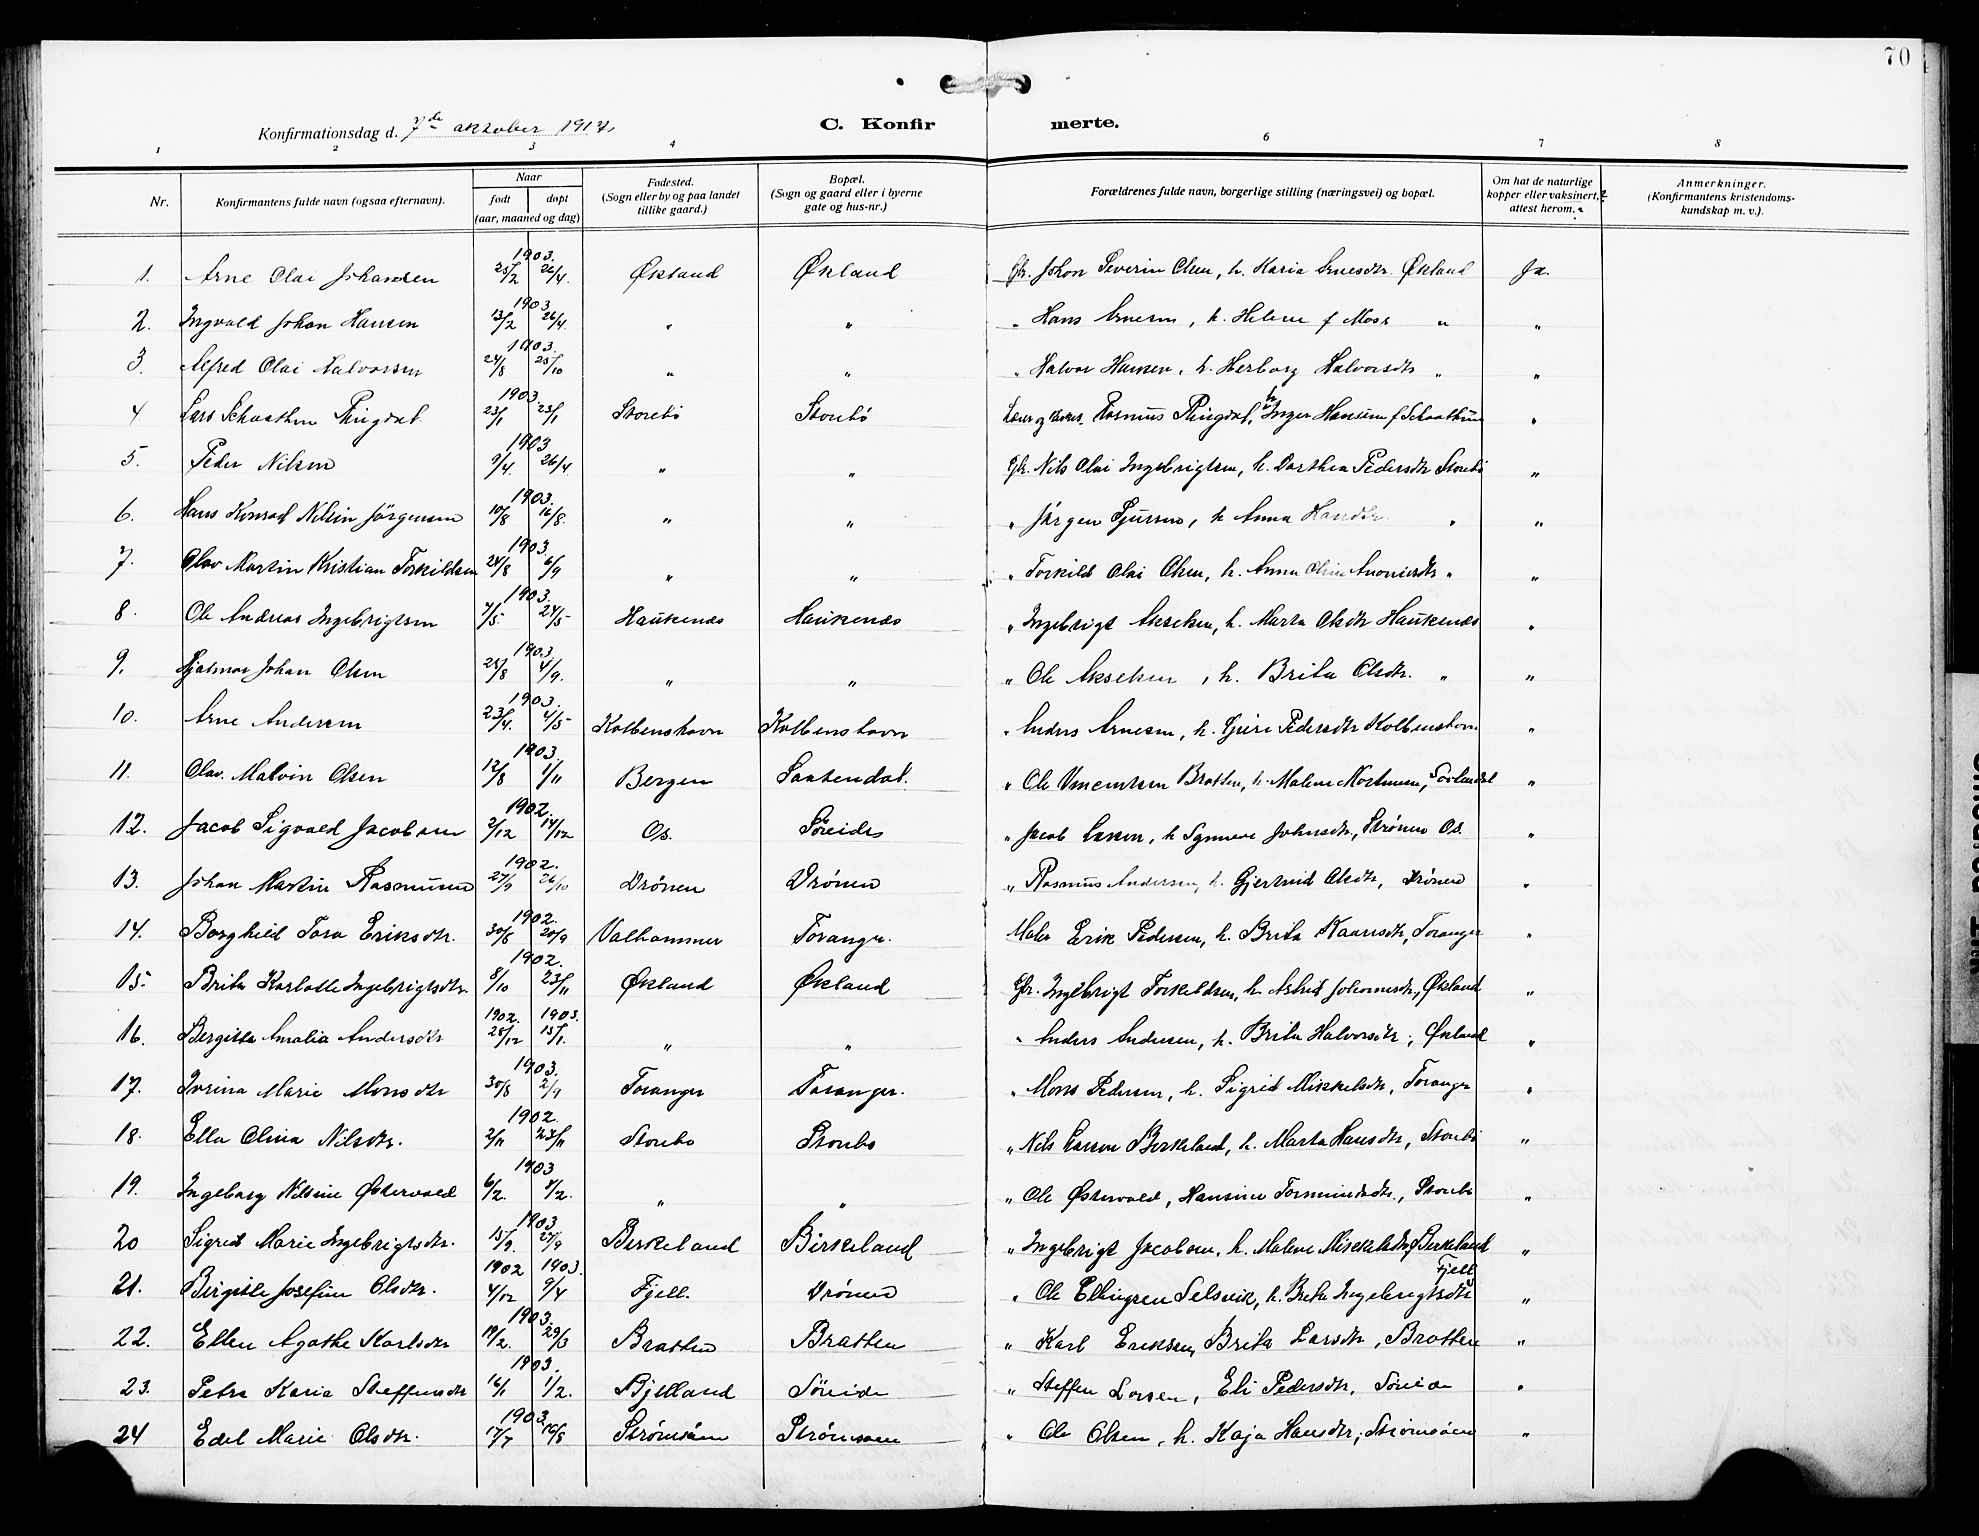 70
Konfirmationsdag d. 7de oktober 1917.
C. Konfirmerte.
1 2 3 4 6 7 8
Nr. | Konfirmantens fulde navn (ogsaa efternavn). | Naar født døpt (aar, maaned og dag) | Fødested. (Sogn eller by og paa landet tillike gaard.) | Bopæl. (Sogn og gaard eller i byerne gate og hus-nr.) | Forældrenes fulde navn, borgerlige stilling (næringsvei) og bopæl. | Om hat de naturlige kopper eller vaksinert, attest herom. | Anmerkninger. (Konfirmantens kristendoms-kundskap m. v.).
1. Arne Olai Johansen 1903. 25/2 26/4. Økland Økland Gbr. Johan Severin Olsen, h. Maria Arnesdtr. Økland Ja.
2. Ingvald Johan Hansen 1903. 13/2 26/4. " " " Hans Arnesen, h. Helene f Moss " "
3. Alfred Olai Halvorsen 1903. 24/8 25/10 " " " Halvor Hansen, h. Herborg Halvorsdtr " "
4 Lars Schaathun Thingdal. 1903. 23/1 23/1 Storebø Storebø Rasmus Thingdal, h. Inger Hansine f Schaathun "
5. Peder Nilsen 1903 9/4. 26/4 " " Gbr. Nils Olai Ingebrigtsen, h. Dorthea Pedersdtr Storebø "
6. Hans Konrad Nilsin Jørgensen 1903. 10/8 16/8. " " " Jørgen Sjursen, h Anna Hansdtr. " "
7. Olav Martin Kristian Torkildsen 1903. 24/8 6/9 " " " Torkild Olai Olsen, h. Anna Oline " "
8. Ole Andreas Ingebrigtsen 1903. 7/5 24/5 Haukenæs Haukenæs " Ingebrigt Akselsen, h. Marta Olsdtr Haukenæs "
9. Hjalmar Johan Olsen 1903. 25/8 4/9. " " " Ole Akselsen, h. Brita Olsdtr. " "
10. Arne Andersen 1903. 23/4. 4/5 Kolbenshavn Kolbenshavn " Anders Arnesen, h. Guri Pedersdtr Kolbenshavn "
11. Olav Malvin Olsen 1903. 12/8 1/11 Bergen Lautendal. " Ole Vincentsen Bratten, h. Malene "
12. Jacob Sigvald Jacobsen 1902. 2/12 14/12 Os. Søreide " Jacob Larsen, h Synneve Johnsdtr, Strønen Os. "
13. Johan Martin Rasmussen 1902. 27/9 26/10 Drønen Drønen " Rasmus Andersen, h. Gjertrud Olsdtr, Drønen "
14. Borghild Tora Eriksdtr. 1902. 30/8 20/9 Valhammer Toranger. Maler Erik Pedersen, h. Brita Toranger "
15. Brita Karlotte Ingebrigtsdtr. 1902. 8/10 23/11 Økland Økland Gbr. Ingebrigt Torkildsen, h. Astrid Johannesdtr, Økland "
16. Bergitta Amalia Andersdtr 1902. 25/12 1903. 15/1. " " " Anders Andersen, h. Brita Halvorsdtr, Økland "
17. Ivrina Marie Monsdtr 1903. 30/8 2/9 Toranger Toranger. " Mons Pedersen, h. Sigrid Mikkelsdtr, Toranger "
18. Ella Olina Nilsdtr. 1902. 2/11 23/11 Storebø Storebø " Nils Larsen Birkeland, h. Marta Hansdtr, Storebø "
19. Ingeborg Nilsine Østervold 1903 6/2. 8/2. " " " Ole Østervold, Hansine Tormundsdtr., Storebø "
20 Sigrid Marie Ingebrigtsdtr. 1903 15/9. 27/9 Birkeland Birkeland " Ingebrigt Jacobsen, h. Malene Mikkelsdtr, Birkeland "
21. Birgitte Josefine Olsdtr. 1902 4/12 1903. 9/4 Fjell. Drønen " Ole Ellingsen Selsvik, h. Brita Ingebrigtsdtr Fjell "
22. Ellen Agathe Karlsdtr 1903. 19/2. 29/3 Bratten Bratten " Karl Eriksen, Brita Larsdtr, Bratten "
23. Petra Karia Steffensdtr 1903. 16/1 1/2. Bjelland Søreide " Steffen Larsen, Eli Pedersdtr. Søreide "
24 Edel Marie Olsdtr. 1903. 17/7 16/8 Strømsøen Strømsøen " Ole Olsen, h. Kaja Hansdtr, Strømsøen "